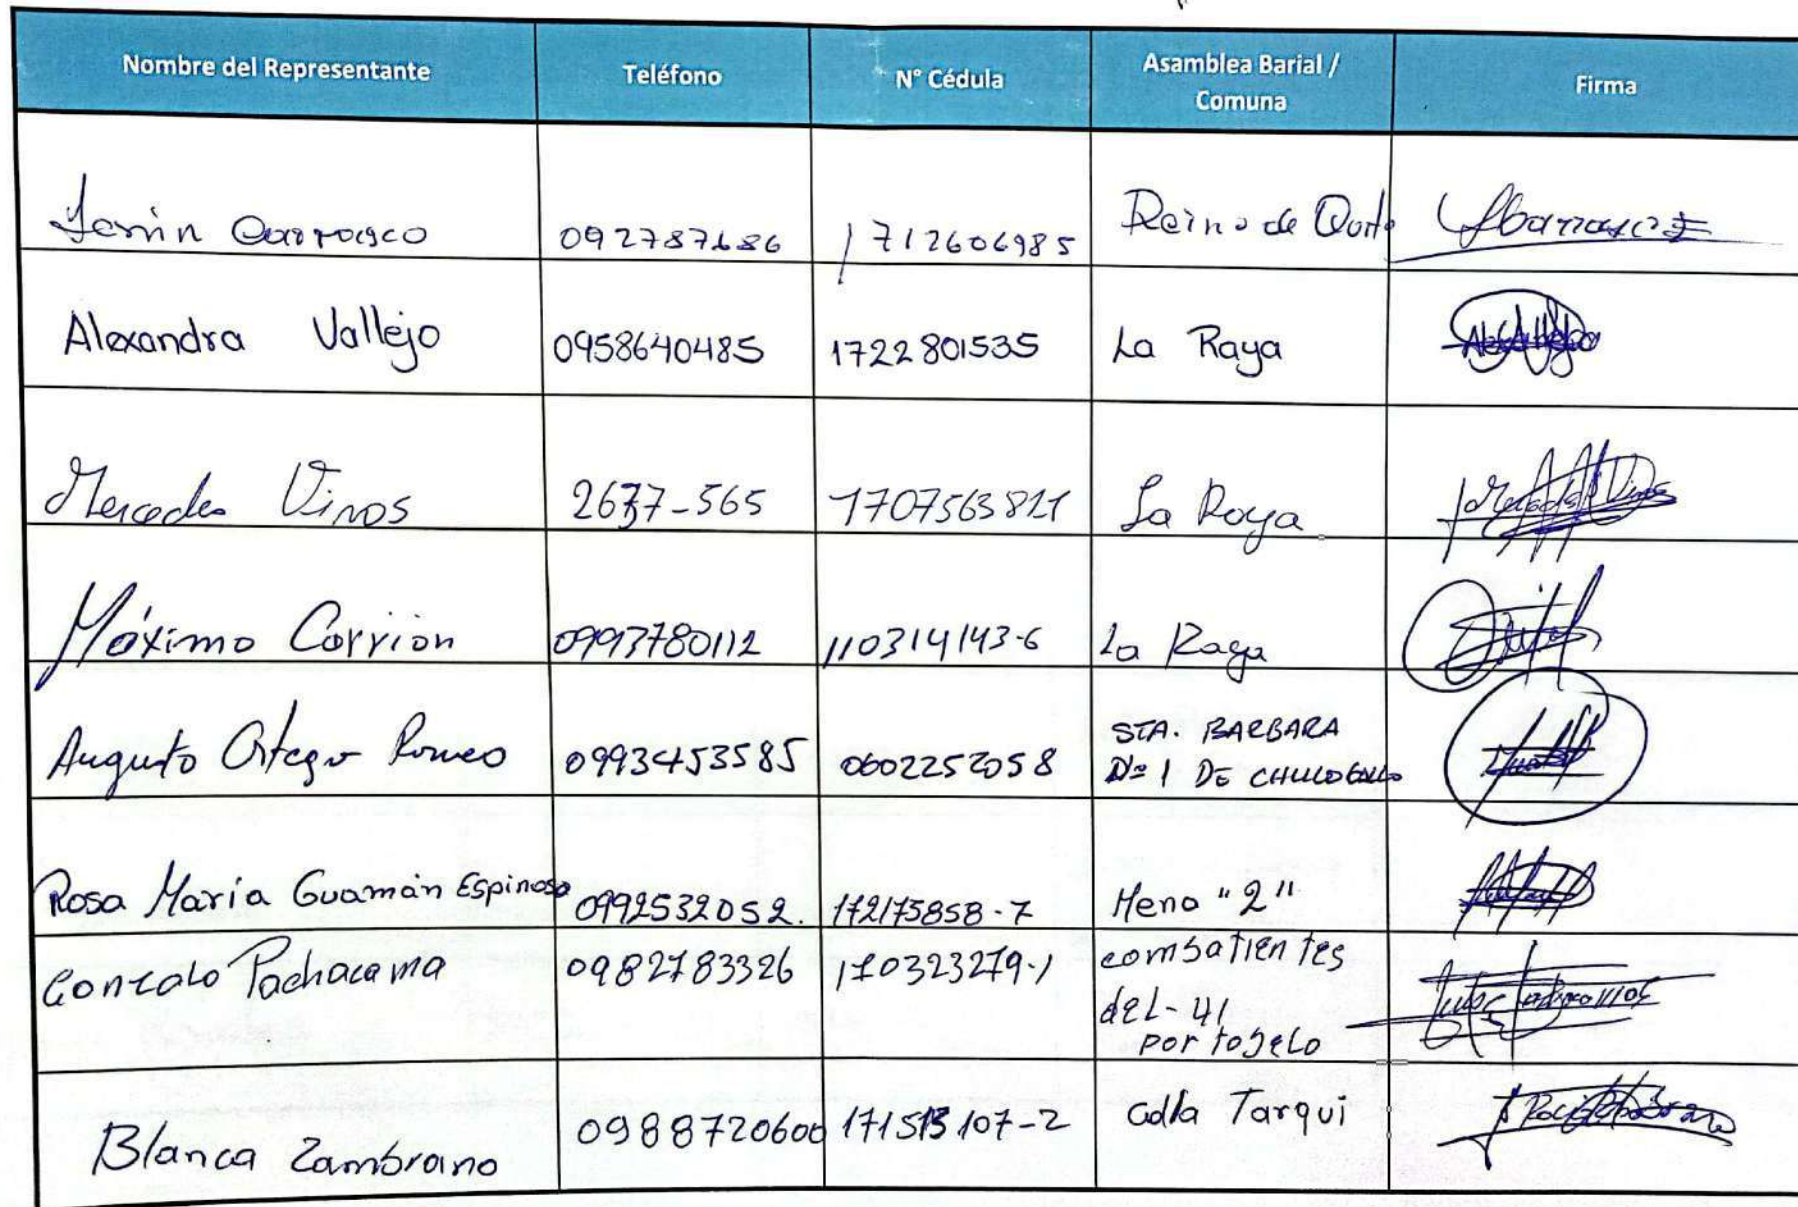 Nombre del Representante Teléfono N° Cédula Asamblea Barial / Comuna Firma
Carrasco 092787686 1712606985 Reino de Quito
Alexandra Vallejo 0958640485 1722801535 La Raya
Mercedes Vinos 2677-565 1707563821 La Raya
Máximo Carrion 0993780112 110314143-6 La Raya
Augusto Ortega Romeo 0993453585 0602252058 STA. BARBARA
N° 1 DE CHILLOGALLO
Rosa María Guamán Espinosa 0992532052. 172175858-7 Mena "2"
Gonzalo Pachacama 0982783326 170323279-1 combatientes
del-41
portojelo
Blanca Zambrano 0988720600 171513107-2 Cdla Tarqui